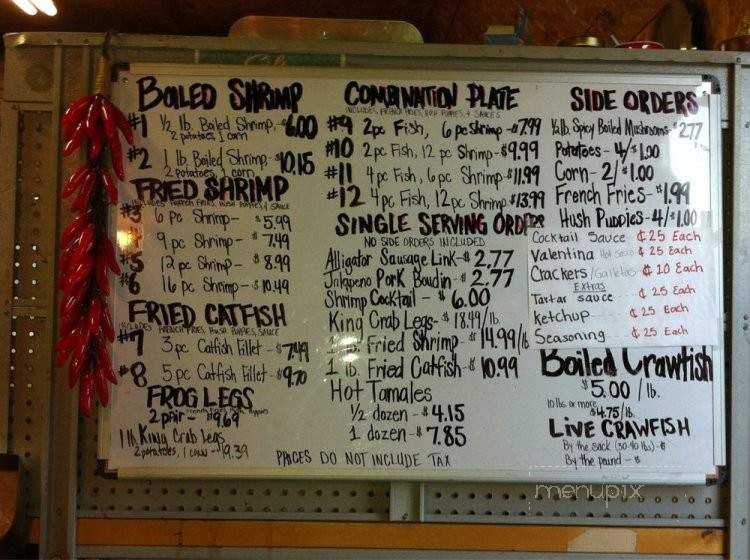 BOILED SHRIMP
#1 ½ lb. Boiled Shrimp, - $6.00
2 potatoes, 1 corn
#2 1 lb. Boiled Shrimp - $10.15
2 potatoes, 1 corn
FRIED SHRIMP
INCLUDES FRENCH FRIES, HUSH PUPPIES & SAUCE
#3 6 pc Shrimp - $5.99
9 pc Shrimp - $7.49
#5 12 pc Shrimp - $8.99
#6 16 pc Shrimp - $10.49
FRIED CATFISH
INCLUDES FRENCH FRIES, HUSH PUPPIES, SAUCE
#7 3pc Catfish Fillet - $7.49
#8 5pc Catfish Fillet - $9.70
FROG LEGS
2 pair - $9.69
1 lb King Crab Legs
2 potatoes, 1 corn - $19.39
COMBINATION PLATE
INCLUDES FRENCH FRIES, HUSH PUPPIES, & SAUCES
#9 2pc Fish, 6 pc Shrimp - $7.99
#10 2pc Fish, 12 pc Shrimp - $9.99
#11 4pc Fish, 6pc Shrimp - $11.99
#12 4pc Fish, 12pc Shrimp - $13.99
SINGLE SERVING ORDERS
NO SIDE ORDERS INCLUDED
Alligator Sausage Link - $2.77
Jalapeno Pork Boudin - $2.77
Shrimp Cocktail - $6.00
King Crab Legs - $18.49/lb
1 lb. Fried Shrimp - $14.99/lb
1 lb. Fried Catfish - $10.99
Hot Tamales
½ dozen - $4.15
1 dozen - $7.85
PRICES DO NOT INCLUDE TAX
SIDE ORDERS
½lb. Spicy Boiled Mushrooms - $2.77
Potatoes - 4/$1.00
Corn - 2/$1.00
French Fries - $1.99
Hush Puppies - 4/$1.00
Cocktail Sauce ¢25 Each
Valentina Hot Sauce ¢25 Each
Crackers/Galletas ¢10 Each
Extras
Tartar sauce ¢25 Each
Ketchup ¢25 Each
Seasoning ¢25 Each
Boiled Crawfish
$5.00 /lb.
10 lbs or more $4.75/lb.
LIVE CRAWFISH
By the sack (30-40 lbs) - $
By the pound - $
menupix